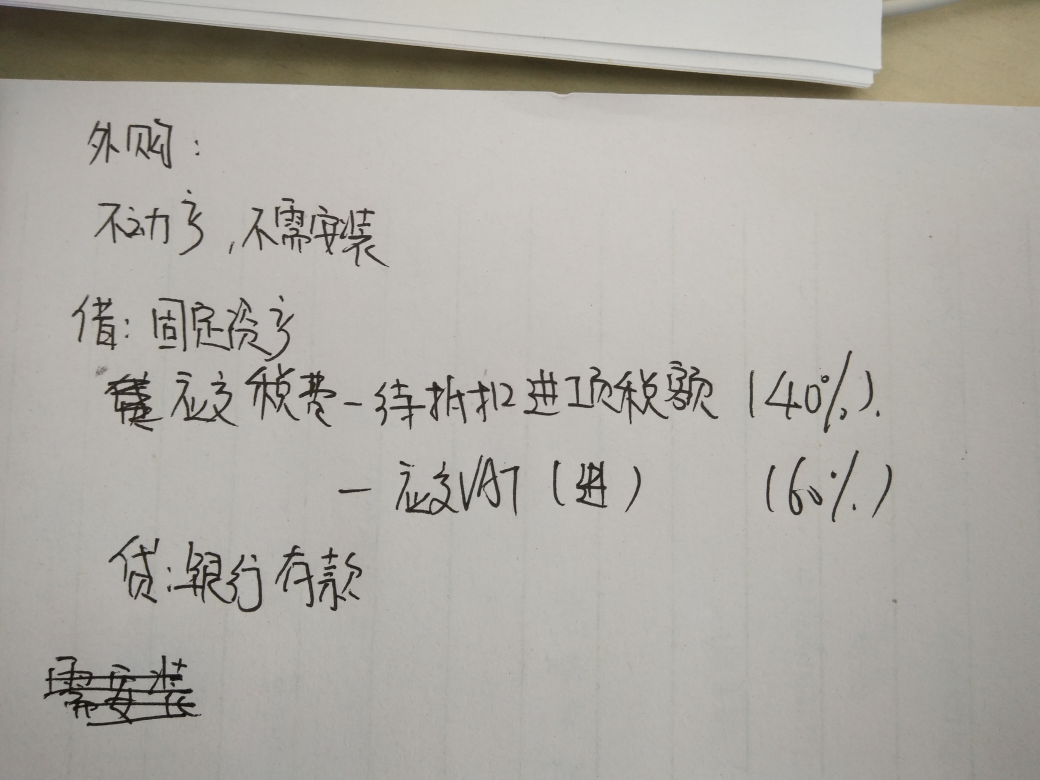 外购：
不动产，不需安装
借：固定资产
应交税费－待抵扣进项税额（40%）.
－应交VAT（进）（60%）
贷：银行存款
需安装